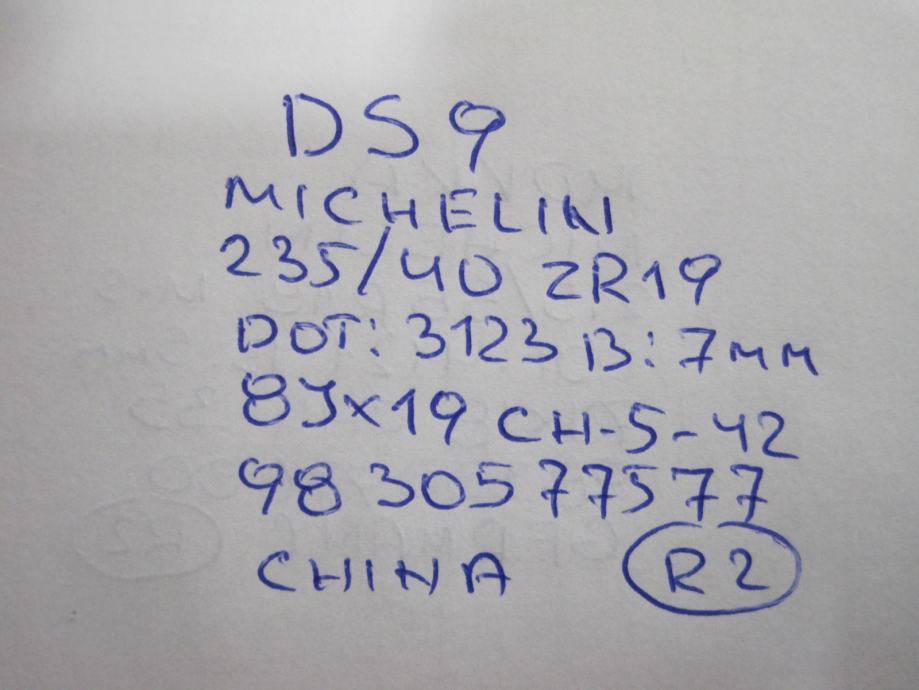 DS 9
MICHELIN
235/40 ZR19
DOT: 3123 B: 7мм
8Jx19 CH-5-42
98 305 77577
CHINA R2